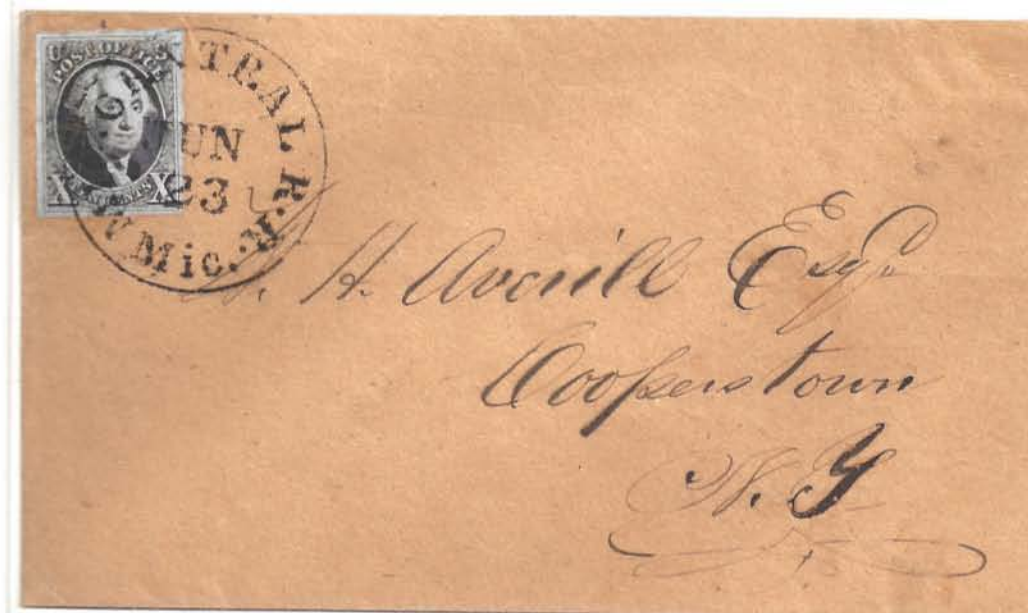 U S
POST OFFICE
X X
CENTRAL R.R.
JUN
23
Mic.
H. Averill Esqr
Cooperstown
N. Y